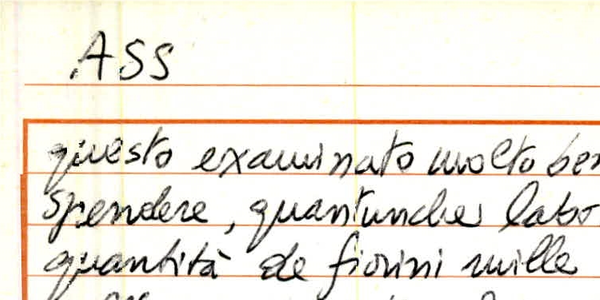 ASS
questo examinato molto ben
spendere, quantunche labo
quantità de fiorini mille